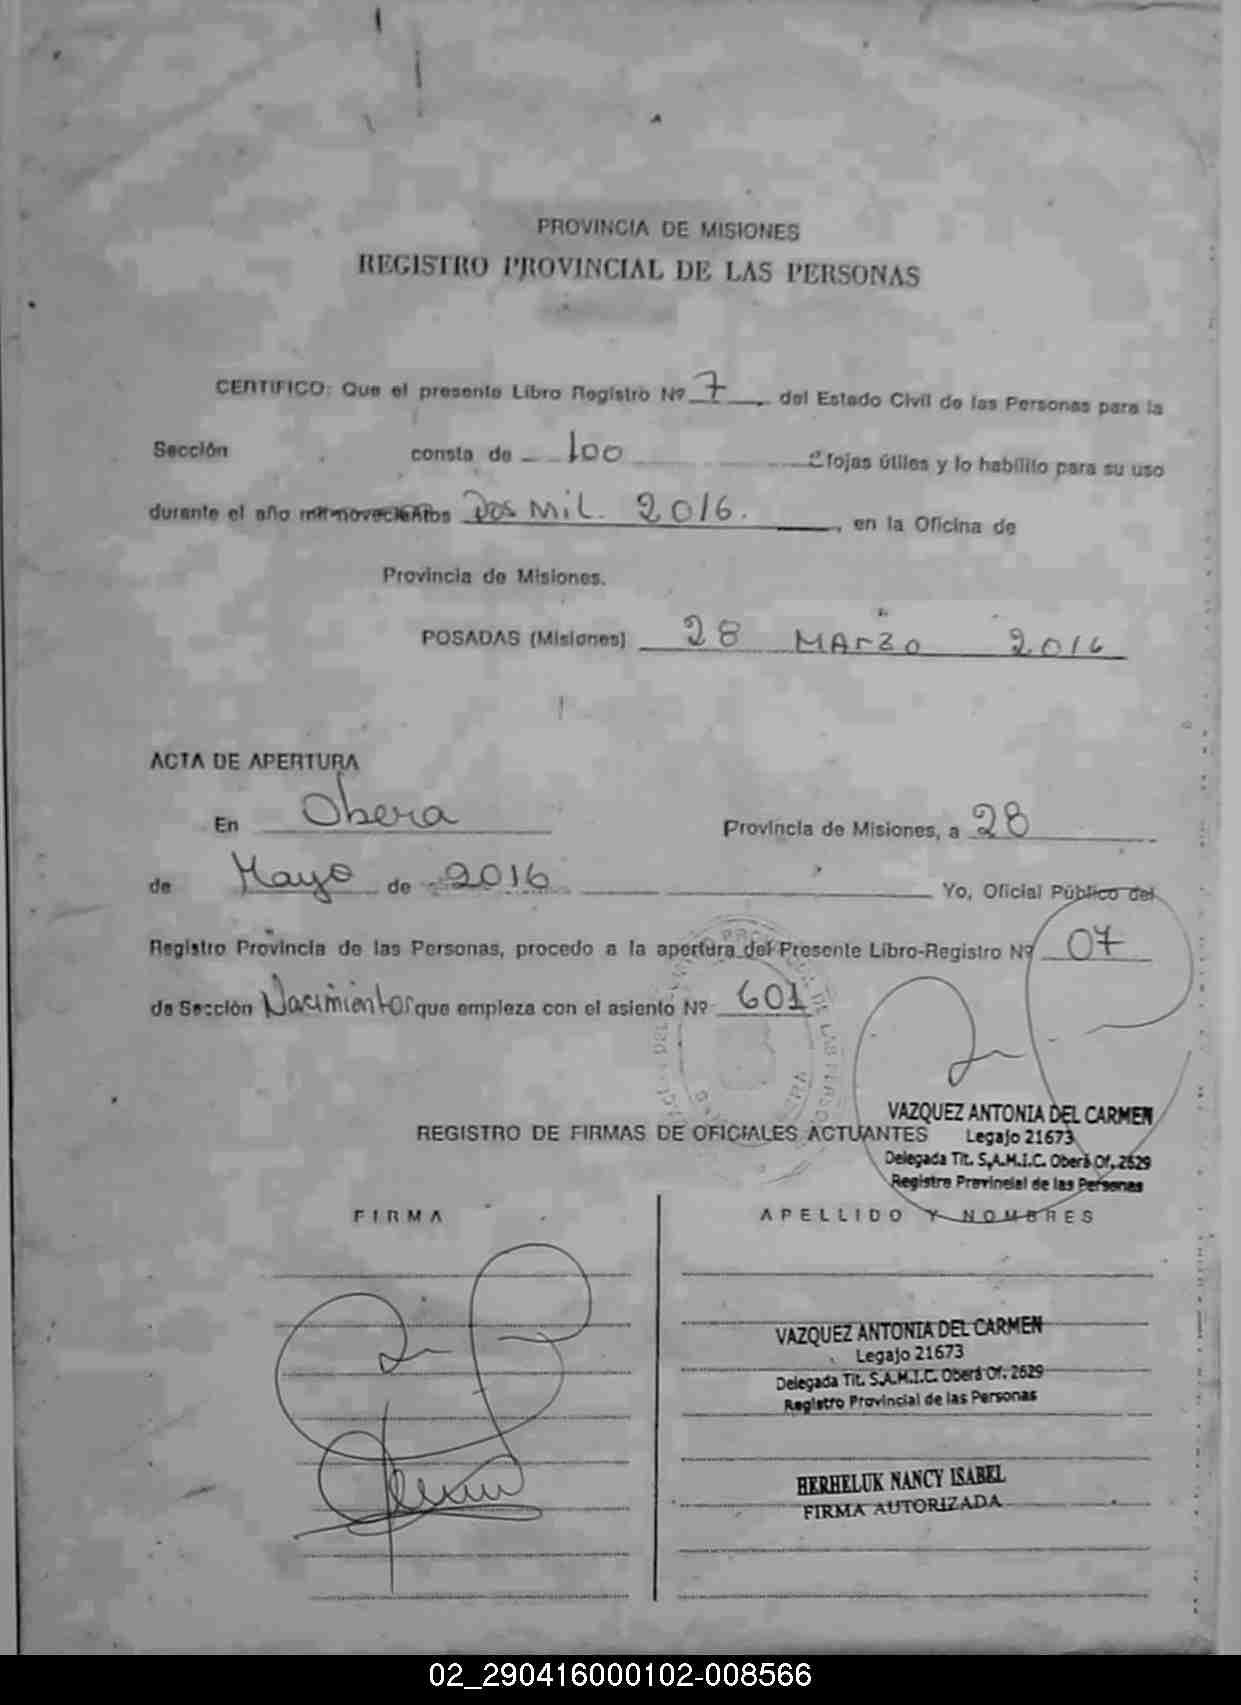 PROVINCIA DE MISIONES
REGISTRO PROVINCIAL DE LAS PERSONAS
CERTIFICO: Que el presente Libro Registro Nº 7 , del Estado Civil de las Personas para la
Sección consta de 100 fojas útiles y lo habilito para su uso
durante el año mil novecientos Dos Mil. 2016. , en la Oficina de
Provincia de Misiones.
POSADAS (Misiones) 28 MArzo 2016
ACTA DE APERTURA
En Obera Provincia de Misiones, a 28
de Mayo de 2016 Yo, Oficial Público del
Registro Provincia de las Personas, procedo a la apertura del Presente Libro-Registro Nº 07
de Sección Nacimientos que empieza con el asiento Nº 601
VAZQUEZ ANTONIA DEL CARMEN
REGISTRO DE FIRMAS DE OFICIALES ACTUANTES Legajo 21673
Delegada Tit. S.A.M.I.C. Oberá Of. 2629
Registro Provincial de las Personas
FIRMA APELLIDO Y NOMBRES
VAZQUEZ ANTONIA DEL CARMEN
Legajo 21673
Delegada Tit. S.A.M.I.C. Oberá Of. 2629
Registro Provincial de las Personas
HERHELUK NANCY ISABEL
FIRMA AUTORIZADA
02_290416000102-008566